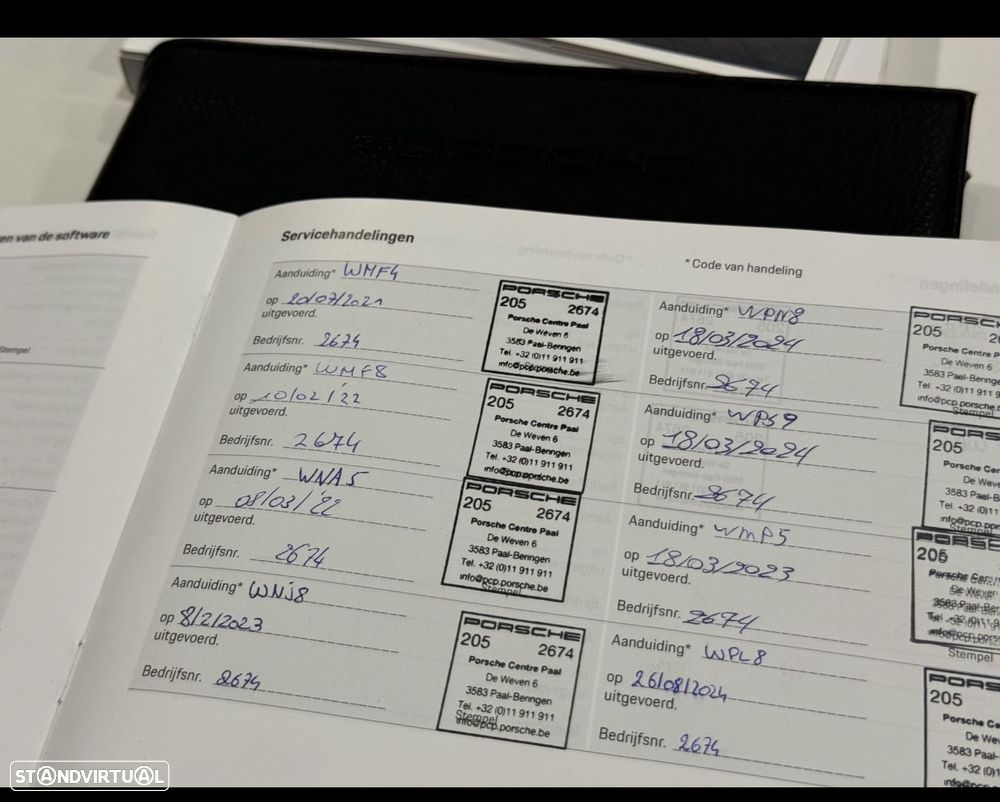 PORSCHE
en van de software
Stempel
Servicehandelingen
* Code van handeling
Aanduiding* WMF4
op 20/07/2021
uitgevoerd.
Bedrijfsnr. 2674
PORSCHE
205 2674
Porsche Centre Paal
De Weven 6
3583 Paal-Beringen
Tel. +32 (0)11 911 911
info@pcp.porsche.be
Aanduiding* WMF8
op 10/02/'22
uitgevoerd.
Bedrijfsnr. 2674
PORSCHE
205 2674
Porsche Centre Paal
De Weven 6
3583 Paal-Beringen
Tel. +32 (0)11 911 911
info@pcp.porsche.be
Aanduiding* WNA5
op 08/03/'22
uitgevoerd.
Bedrijfsnr. 2674
PORSCHE
205 2674
Porsche Centre Paal
De Weven 6
3583 Paal-Beringen
Tel. +32 (0)11 911 911
info@pcp.porsche.be
Stempel
Aanduiding* WNJ8
op 8/2/2023
uitgevoerd.
Bedrijfsnr. 2674
PORSCHE
205 2674
Porsche Centre Paal
De Weven 6
3583 Paal-Beringen
Tel. +32 (0)11 911 911
Stempel
info@pcp.porsche.be
Aanduiding* WPN8
op 18/03/2024
uitgevoerd.
Bedrijfsnr. 2674
PORSCHE
205
Porsche Centre P
De Weven 6
3583 Paal-Bering
Tel. +32 (0)11 911
info@pcp.porsche
Stempel
Aanduiding* WPS9
op 18/03/2024
uitgevoerd.
Bedrijfsnr. 2674
PORS
205
Porsche Ce
De Wev
3583 Paal-B
Tel. +32 (0)11
info@pcp.po
Stempel
Aanduiding* WMP5
op 18/03/2023
uitgevoerd.
Bedrijfsnr. 2674
205
Stempel
Aanduiding* WPL8
op 26/08/2024
uitgevoerd.
Bedrijfsnr. 2674
PORS
205
Porsche Ce
De We
3583 Paal-
Tel. +32 (0)1
info@pcp.p
STANDVIRTUAL